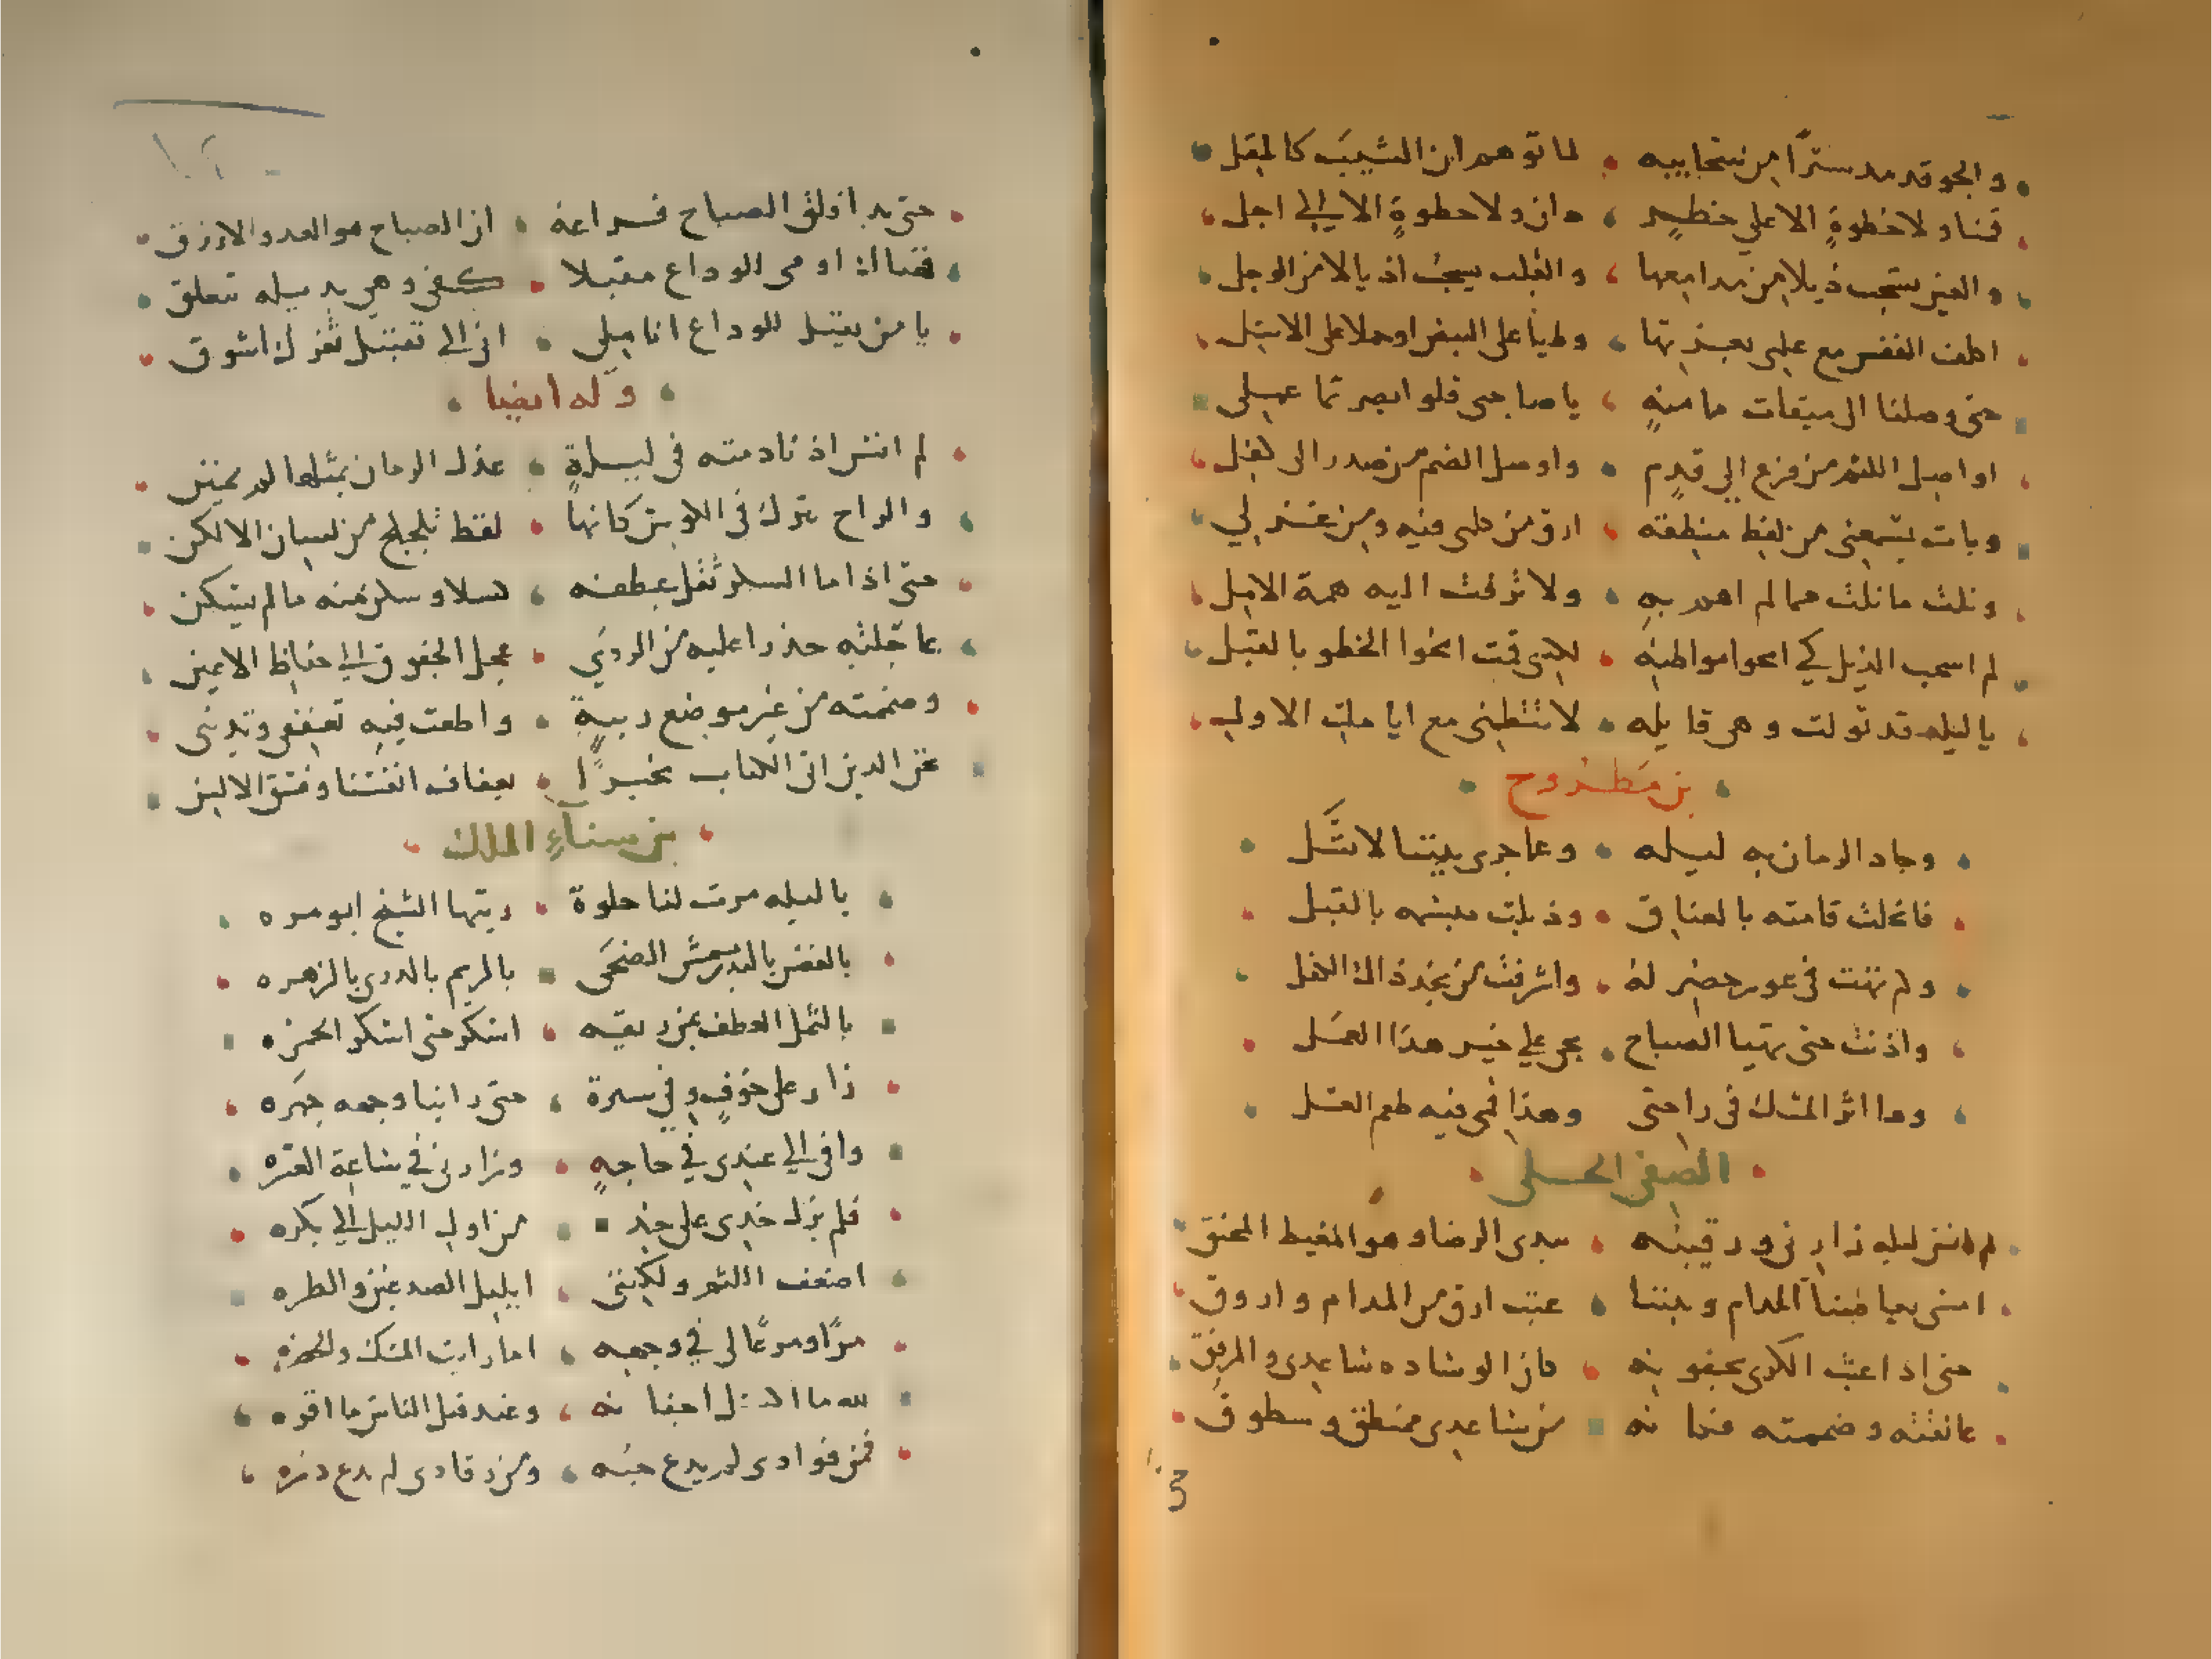 والجو قد مد سترا من سحايبه لما توهم ان الشيب كالمقل
قمنا ولا خطوة الا على خطر دان ولا خطوة الا الى اجل
والعين تسحب ذيلا من مدامعها والقلب يسحب اذيالا من الوجل
اكلف النفس مع علمى بعزتها وطيا على البيض او حملا على الاسل
حتى وصلنا الى ميقات مامنه يا صاحبى فلو ابصرتما عملى
اواصل اللثم من فرع الى قدم واوصل الضم من صدر الى كفل
وبات يسمعنى من لفظ منطقه ارق من كلمى فيه ومن غزلي
ونلت ما نلت مما لم اهم به ولا ترقت اليه همة الامل
لم اسحب الذيل كي امحوا مواطيه لكنى قمت امحوا الخطو بالقبل
يا ليله قد تولت وهى قايله لا تنظمنى مع ايامك الاول
بن مطروح
وجاد الزمان به ليله وعما جرى بيننا لا تسل
فانحلت قامته بالعناق وذبلت مبسمه بالقبل
ولم تهت فى غور خصر له واشرفت من نجد ذاك الكفل
واذنت حتى تهيا الصباح بحى على خير هذا العمل
وها اثر المسك فى راحتى وهذا فمى فيه طعم العسل
الصفى الحلى
لم انس ليله زارنى ورقيبه يبدى الرضا وهو المغيظ المحنق
امسى يعاطينا المدام وبيننا عتب ارق من المدام واروق
حتى اذا عبث الكرى بجفونه كان الوساده ساعدى والمرفق
عانقته وضممته فكانه من ساعدى ممنطق ومطوق
حتى بدا فلق الصباح فراعه ان الصباح هو العدو الازرق
فهناك اومى للوداع مقبلا كفى وهى بذيله تتعلق
يا من يقبل للوداع اناملى انى الى تقبيل ثغرك اشوق
وله ايضا
لم انس اذ نادمته فى ليلة عدل الزمان بمثلها لم يمنن
والراح تترك فى الكوس كانها لفظ تلجلج من لسان الالكن
حتى اذا ما السكر ثقل عطفه وسكن منه ما لم يسكن
عاجلته حذرا عليه من الردى عجل الجفون الى حفاظ الاعين
وضممته من غير موضع ريبة واطعت فيه تعففى وتدينى
نحن الذين اتى الكتاب مخبرا بعفاف انفسنا وفسق الالسن
بن سناء الملك
يا ليله مرت لنا حلوة ريتها الشيخ ابو مره
بالغصن بالبدر بشمس الضحى بالريم بالدرى بالزهره
بالثمل العطف بمن ريقه اسكر حتى اسكر الخمره
زار على خوف وفي سترة حتى راينا وجهه جهره
وافى الي عندى في حاجه وزارنى في ساعة العسره
فلم يزل خدى على خده من اول الليل الي بكره
اضعف اللثم ولكننى ابلبل الصدغين والطره
مرا ومرعا لى في وجهه اما رايت المسك والخضره
لله ما اذبل اجفانه وعند قتل الناس ما اقوه
فمن فوادى لم يدع حبه ومن رقادى لم يدع ذره